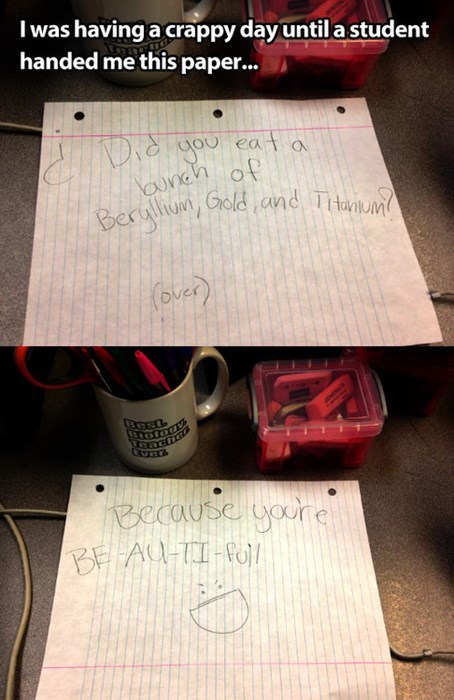 I was having a crappy day until a student
handed me this paper...
¿ Did you eat a
bunch of
Beryllium, Gold, and Titanium?
(over)
Best.
Biology.
Teacher.
Ever.
Because you're
BE-AU-TI-full